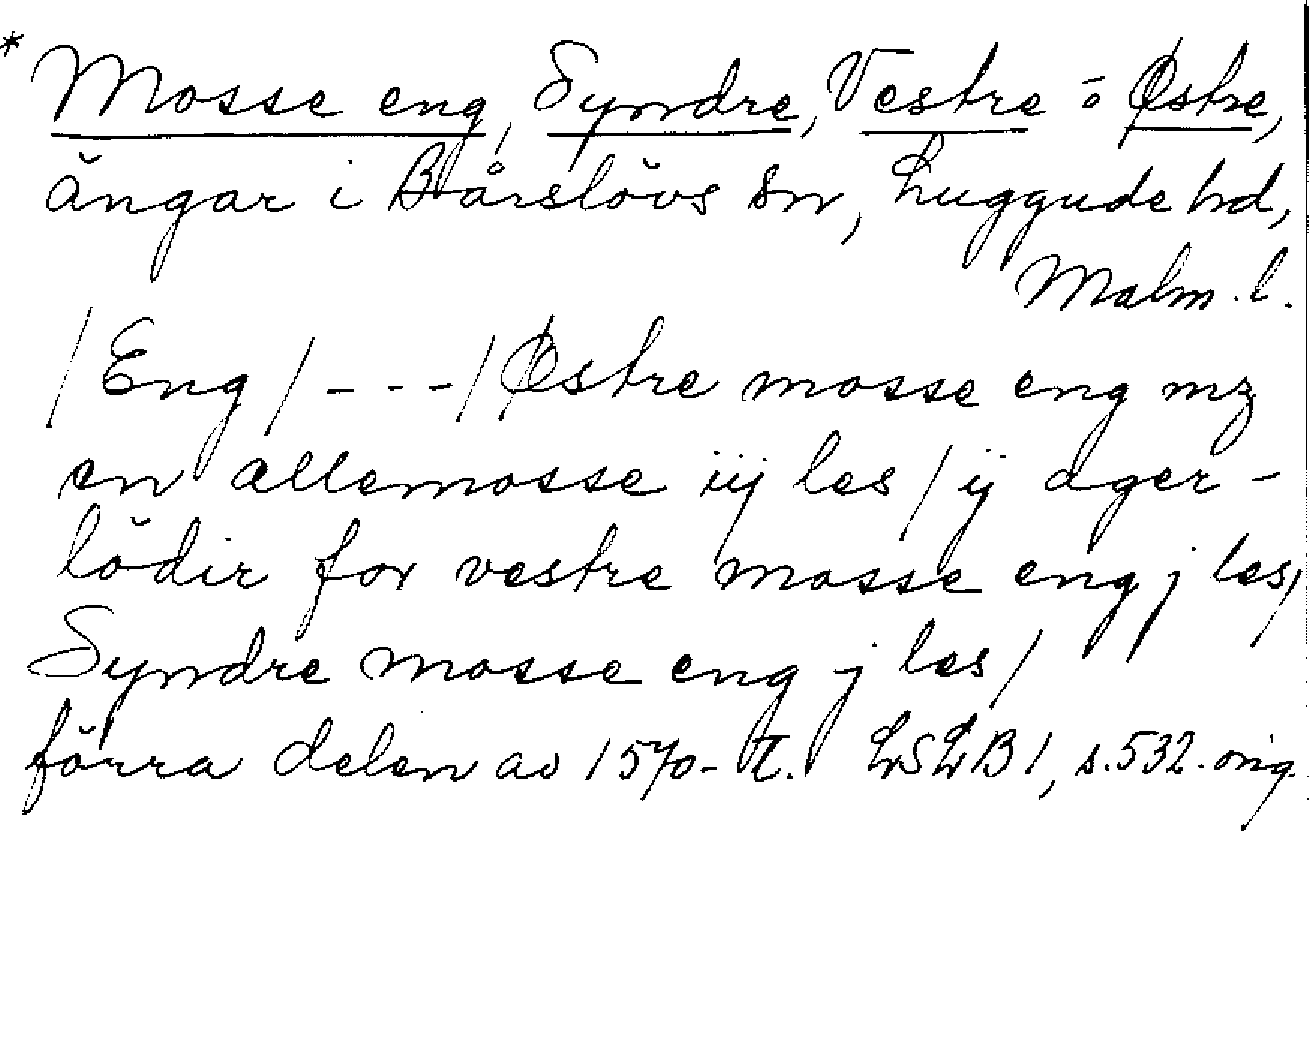 * Mosse eng, Syndre, Vestre o Østre,
ängar i Bårslövs sn, Luggude hd,
Malm. l.
/Eng/ - - - / Østre mosse eng mz
en allemosse iij les / ij ager-
lödir for vestre mosse eng j les/
Syndre mosse eng j les/
förra delen av 1570-t. LSLB 1, s. 532. orig.